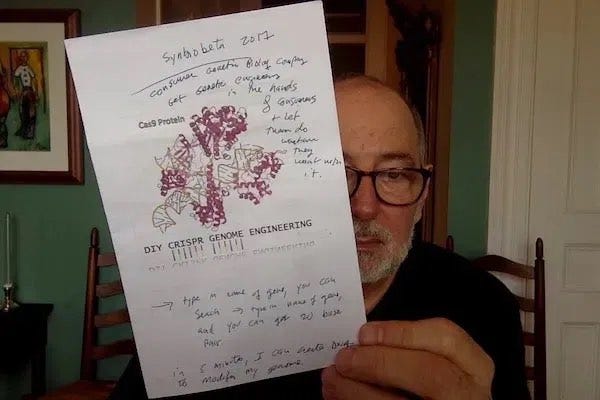 2017
consumer genetic
get genetic engineering
in the hands
of consumers
+ let
them do
whatever
they
want with
it.
Cas9 Protein
DIY CRISPR GENOME ENGINEERING
DIY CRISPR GENOME ENGINEERING
→ type in name of gene, you can
search → type in name of gene,
and you can get 20 base
pair
in 5 minutes, I can create
to modify my genome